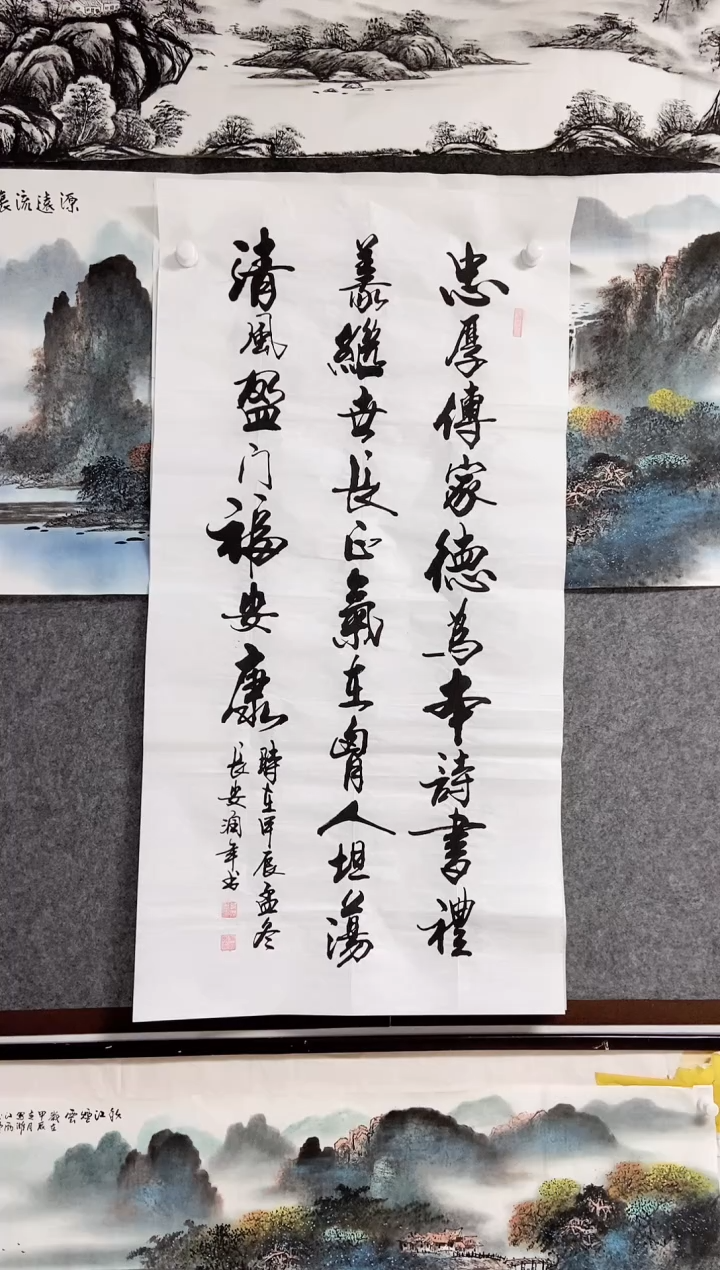 忠厚傳家德為本詩書禮
義繼世長正氣在胷人坦蕩
清風盈门福安康
時在甲辰孟冬
長安润年书
源遠流長
秋江煙雲